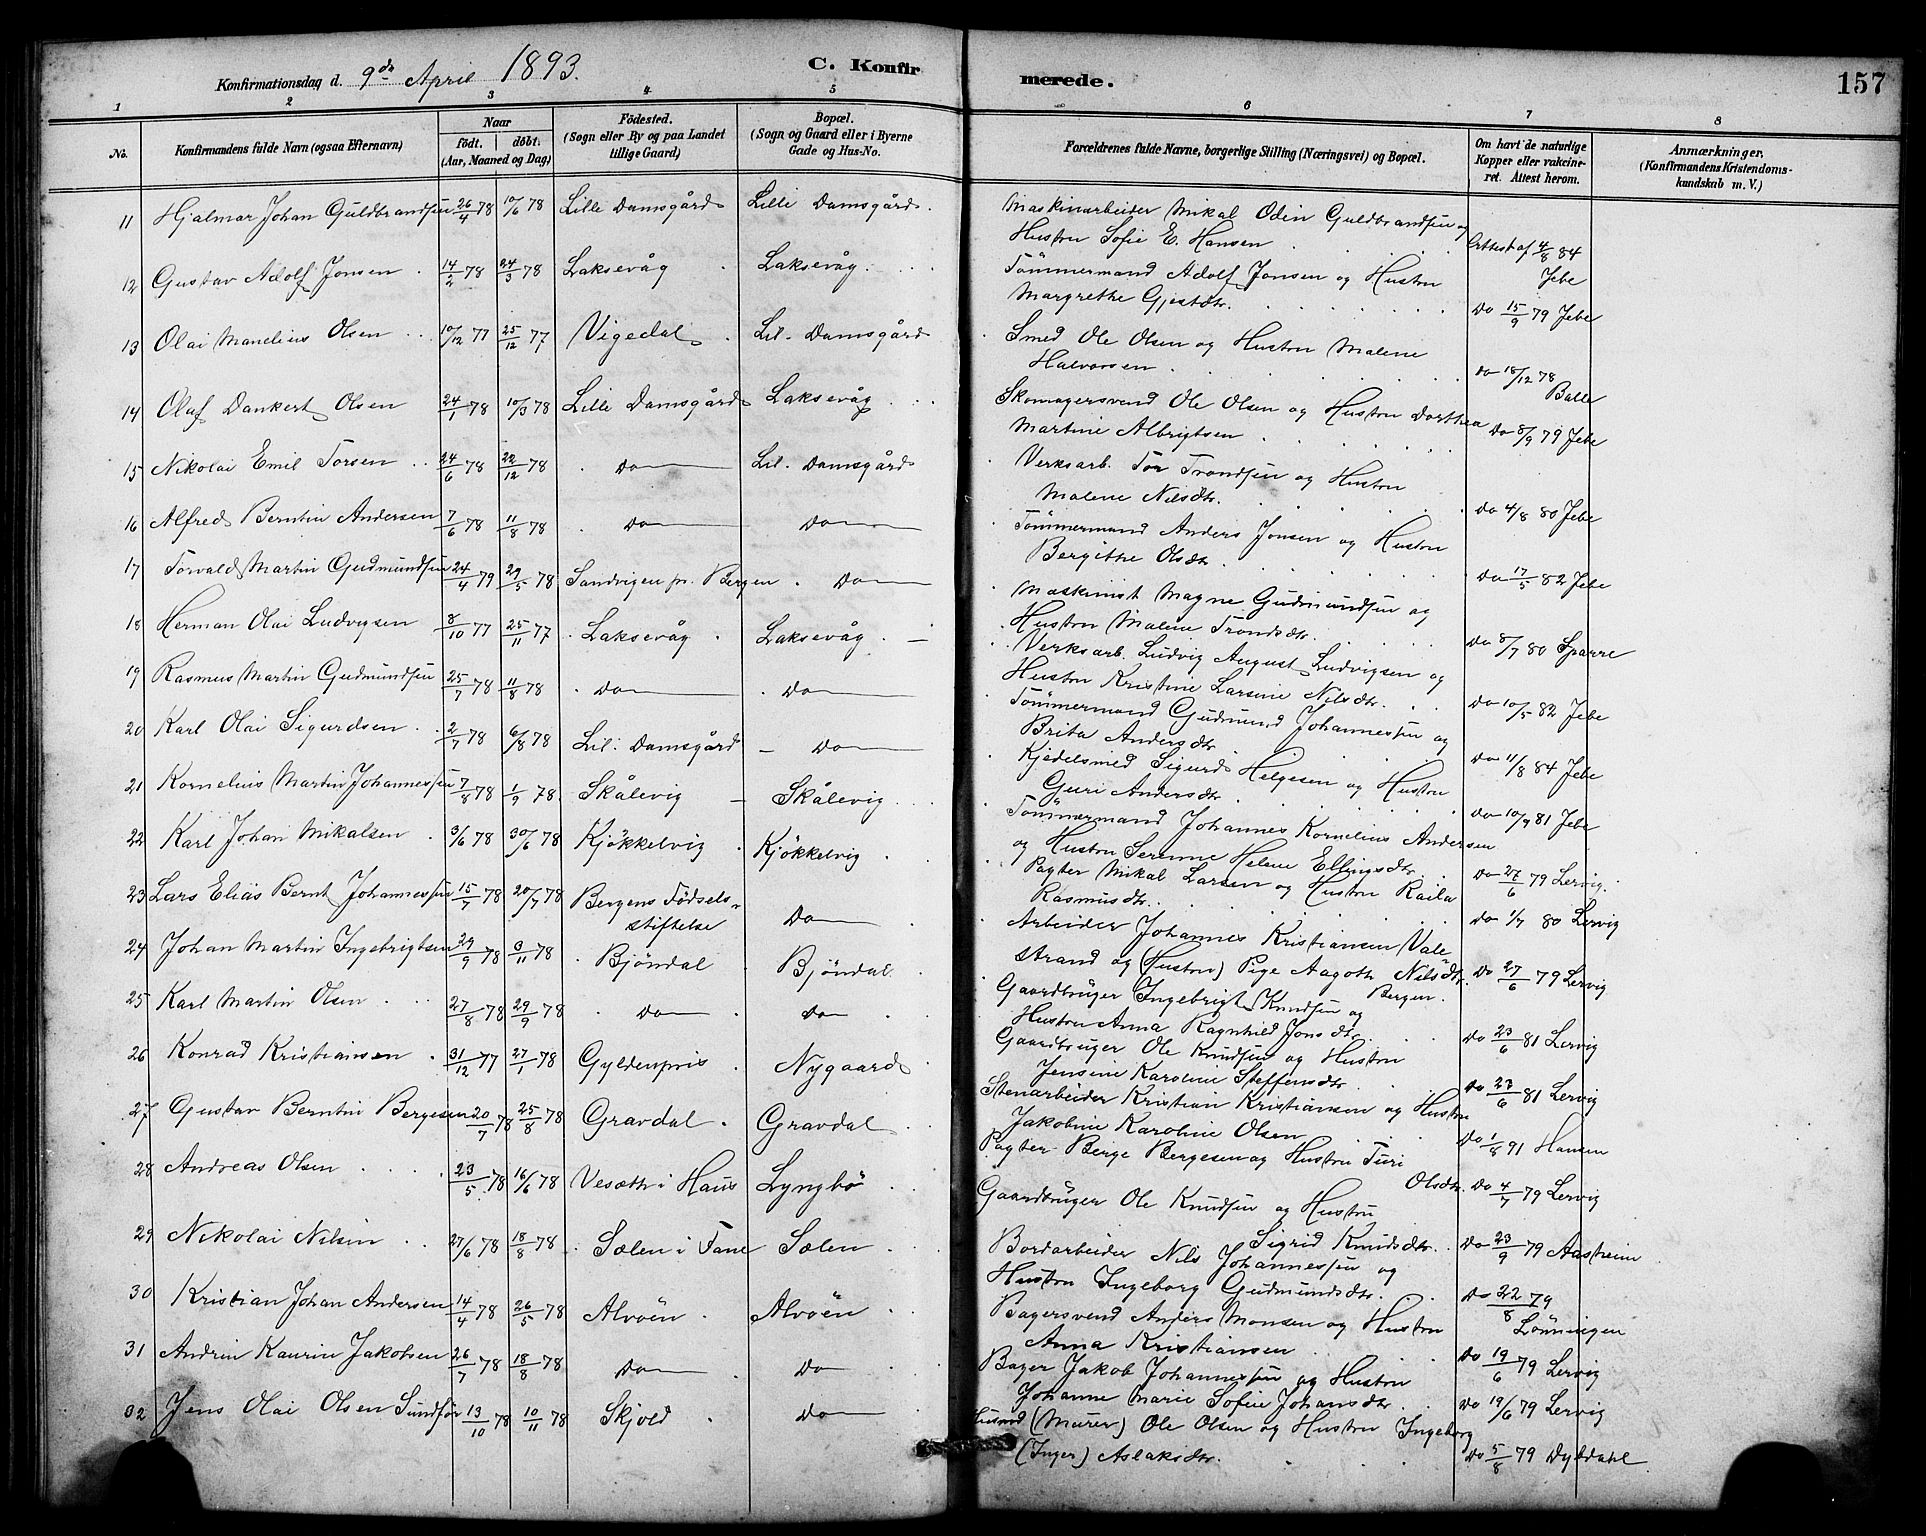 Konfirmationsdag d. 9de April 1893.
C. Konfirmerede.
157
1 2 3 4 5 6 7 8
No.
Konfirmandens fulde Navn (ogsaa Efternavn)
Naar
født. døbt.
(Aar, Maaned og Dag)
Fødested.
(Sogn eller By og paa Landet
tillige Gaard)
Bopæl.
(Sogn og Gaard eller i Byerne
Gade og Hus-No.
Forældrenes fulde Navne, borgerlige Stilling (Næringsvei) og Bopæl.
Om havt de naturlige
Kopper eller vakcine-
ret. Attest herom.
Anmærkninger.
(Konfirmandens Kristendoms-
kundskab m. V.)
11 Hjalmar Johan Guldbrandsen 26/4 78 10/6 78 Lille Damsgård Lille Damsgård. Maskinarbeider Mikal Odin Guldbrandsen og
Hustru Sofie E. Hansen Attest af 4/8 84
Jebe
12 Gustav Adolf Jonsen 14/2 78 24/3 78 Laksevåg Laksevåg. Tömmermand Adolf Jonsen og Hustru
Margrethe Gjestdtr. Do 15/9 79 Jebe
13 Olai Manelius Olsen 10/12 77 25/12 77 Vigedal Lil. Damsgård Smed Ole Olsen og Hustru Malene
Halvorsen Do 18/12 78
Balle
14 Oluf Dankert Olsen 24/1 78 10/3 78 Lille Damsgård Laksevåg Skomagersvend Ole Olsen og Hustru Dorthea
Martine Albrigtsen Do 8/9 79 Jebe
15 Nikolai Emil Torsen 24/6 78 22/12 78 Do Lil. Damsgård Verksarb. Tor Trondsen og Hustru
Malene Nilsdtr. Do 4/8 80 Jebe
16 Alfred Berntin Andersen 7/6 78 11/8 78 Do Do Tömmermand Anders Jonsen og Hustru
Bergithe Olsdtr. Do 17/5 82 Jebe
17 Torvald Martin Gudmundsen 24/4 79 29/5 78 Sandvigen pr. Bergen Do Maskinist Magne Gudmundsen og
Hustru Malene Trondsdtr. Do 8/7 80 Sparre
18 Herman Olai Ludvigsen 8/10 77 25/11 77 Laksevåg Laksevåg Verksarb. Ludvig August Ludvigsen og
Hustru Kristine Larsine Nilsdtr. Do 10/5 82 Jebe
19 Rasmus Martin Gudmundsen 25/7 78 11/8 78 Do Do Tömmermand Gudmund Johannessen og
Brita Andersdtr. Do 11/8 84 Jebe
20 Karl Olai Sigurdsen 2/7 78 6/8 78 Lil. Damsgård Do Kjedelsmed Sigurd Helgesen og Hustru
Guri Andersdtr. Do 10/9 81 Jebe
21 Kornelius Martin Johannessen 7/8 78 1/9 78. Skålevig Skålevig Tömmermand Johannes Kornelius Andersen
og Hustru Serenne Helene Ellingsdtr. Do 27/6 79 Lervig.
22 Karl Johan Mikalsen 3/6 78 30/6 78 Kjökkelvig Kjökkelvig Pagter Mikal Larsen og Hustru Raila
Rasmusdtr. Do 1/7 80 Lervig
23 Lars Elias Bernt Johannessen 15/7 78 20/7 78 Bergens Fødsels-
stiftelse Do Arbeider Johannes Kristiansen Vale-
strand og (Hustru) Pige Aagoth Nilsdtr. Do 27/6 79 Lervig
Bergen.
24 Johan Martin Ingebrigtsen 29/9 78 3/11 78 Bjöndal Bjöndal. Gaardbruger Ingebrigt Knudsen og
Hustru Anna Ragnhild Jonsdtr. Do 23/6 81 Lervig
25 Karl Martin Olsen 27/8 78 29/9 78 Do Do Gaardbruger Ole Knudsen og Hustru
Jensine Karoline Steffensdtr. Do 27/6 81 Lervig
26 Konrad Kristiansen 31/12 77 27/1 78 Gyldenpris Nygaard Stenarbeider Kristian Kristiansen og Hustru
Jakobine Karoline Olsen Do 1/8 91 Hansen
27 Gustav Berntin Bergesen 20/7 78 25/8 78 Gravdal Gravdal Pagter Berge Bergesen og Hustru Turi
Olsdtr. Do 4/7 79 Lervig
28 Andreas Olsen 23/5 78 16/6 78 Vesæth i Haus Lyngbö Gaardbruger Ole Knudsen og Hustru
Sigrid Knudsdtr. Do 23/9 79 Aasheim
29 Nikolai Nilsen 27/6 78 18/8 78 Sælen i Fane Sælen Bordarbeider Nils Johannessen og
Hustru Ingeborg Gudmundsdtr. Do 22/8 79
Lönningen
30 Kristian Johan Andersen 14/4 78 26/5 78 Alvöen Alvöen Bagersvend Anders Monsen og Hustru
Anna Kristiansen Do 19/6 79 Lervig
31 Andrin Kaurin Jakobsen 26/7 78 18/8 78 Do Do Bager Jakob Johannessen og Hustru
Johanne Marie Sofie Johansdtr. Do 19/6 79 Lervig
32 Jens Olai Olsen Sundför 13/10 78 10/11 78 Skjold Do Husmd (Murer) Ole Olsen og Hustru Ingeborg
(Inger) Aslaksdtr. Do 5/8 79 Dybdahl